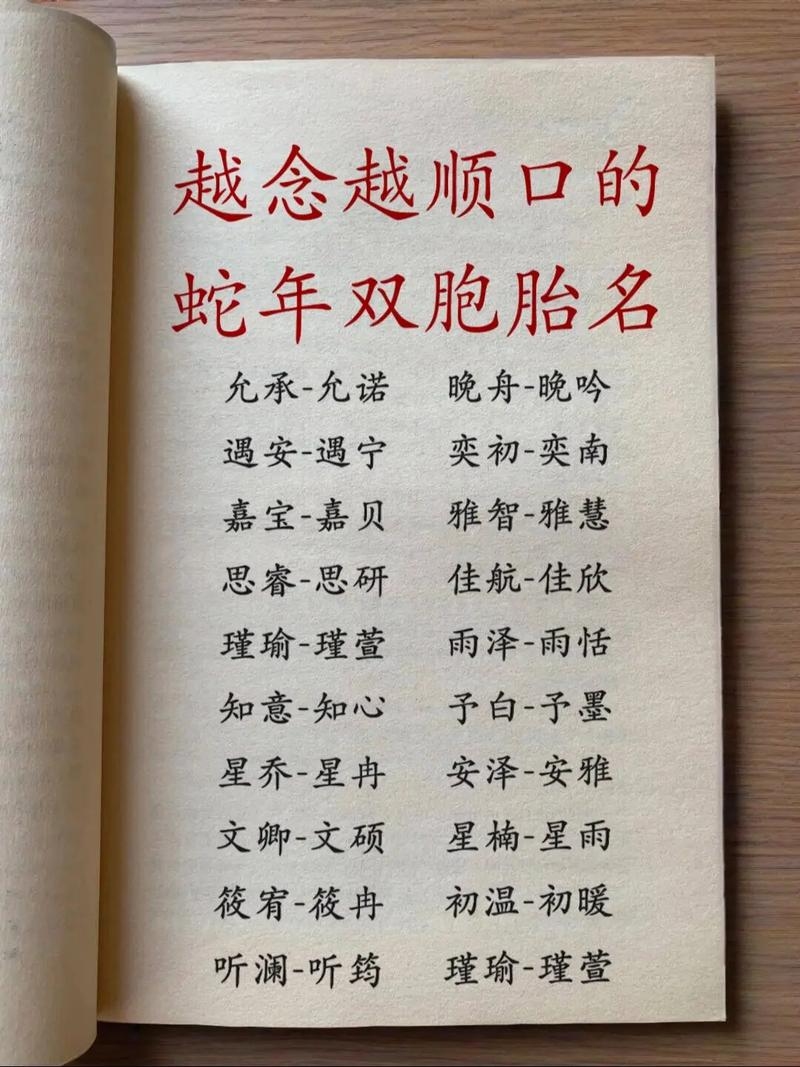 越念越顺口的
蛇年双胞胎名
允承-允诺 晚舟-晚吟
遇安-遇宁 奕初-奕南
嘉宝-嘉贝 雅智-雅慧
思睿-思研 佳航-佳欣
瑾瑜-瑾萱 雨泽-雨恬
知意-知心 予白-予墨
星乔-星冉 安泽-安雅
文卿-文硕 星楠-星雨
筱宥-筱冉 初温-初暖
听澜-听筠 瑾瑜-瑾萱